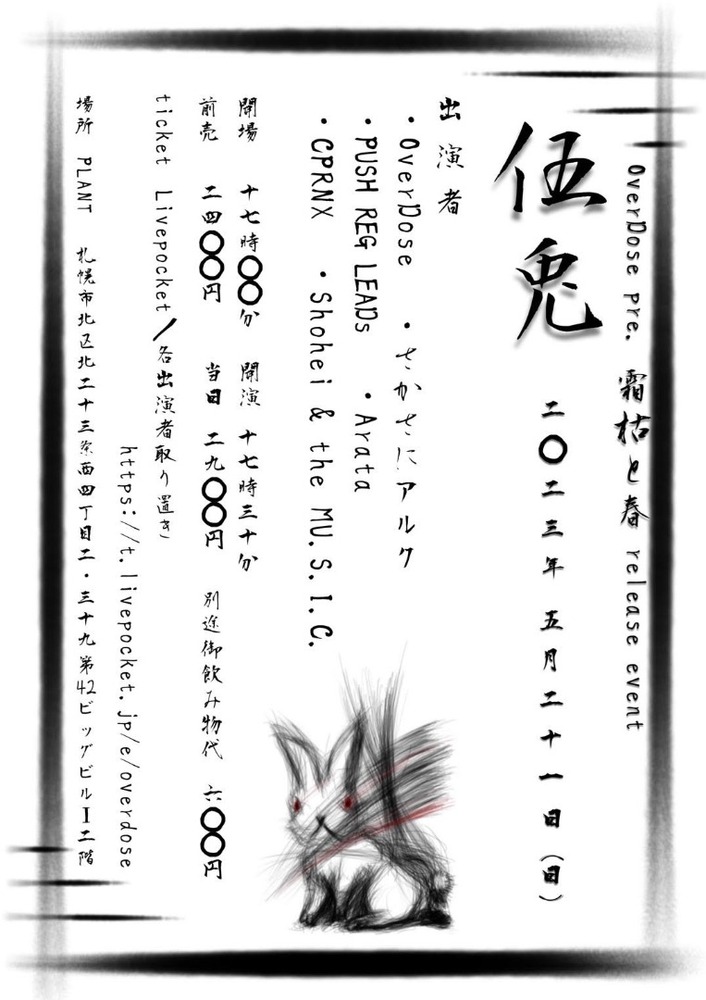 OverDose pre. 霜枯と春 release event
伍兎
二〇二三年 五月二十一日(日)
出演者
・OverDose ・さかさにアルク
・PUSH REG LEADs ・Arata
・CPRNX ・Shohei & the MU.S.I.C.
開場 十七時〇〇分 開演 十七時三十分
前売 二四〇〇円 当日 二九〇〇円 別途御飲み物代 六〇〇円
ticket Livepocket/各出演者取り置き
https://t.livepocket.jp/e/overdose
場所 PLANT 札幌市北区北二十三条西四丁目二・三十九第42ビッグビルI二階